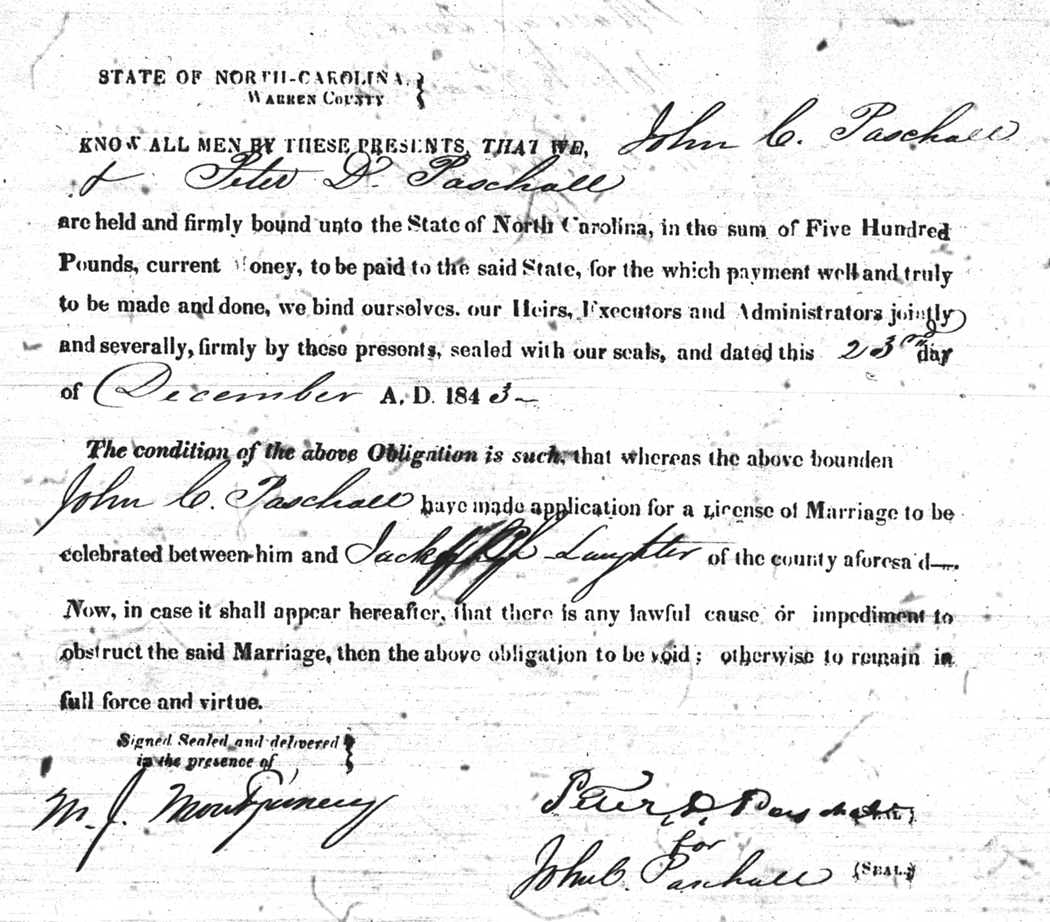 STATE OF NORTH-CAROLINA, }
WARREN COUNTY
KNOW ALL MEN BY THESE PRESENTS, THAT WE, John C. Paschall
& Peter D. Paschall
are held and firmly bound unto the State of North Carolina, in the sum of Five Hundred
Pounds, current Money, to be paid to the said State, for the which payment well and truly
to be made and done, we bind ourselves, our Heirs, Executors and Administrators jointly
and severally, firmly by these presents, sealed with our seals, and dated this 23rd day
of December A. D. 1843-
The condition of the above Obligation is such, that whereas the above bounden
John C. Paschall have made application for a License of Marriage to be
celebrated between him and Laughter of the county aforesa'd—.
Now, in case it shall appear hereafter, that there is any lawful cause or impediment to
obstruct the said Marriage, then the above obligation to be void; otherwise to remain in
full force and virtue.
Signed Sealed and delivered }
in the presence of
M. J. Montgomery
Peter D. Paschall (SEAL)
for
John C. Paschall (SEAL)